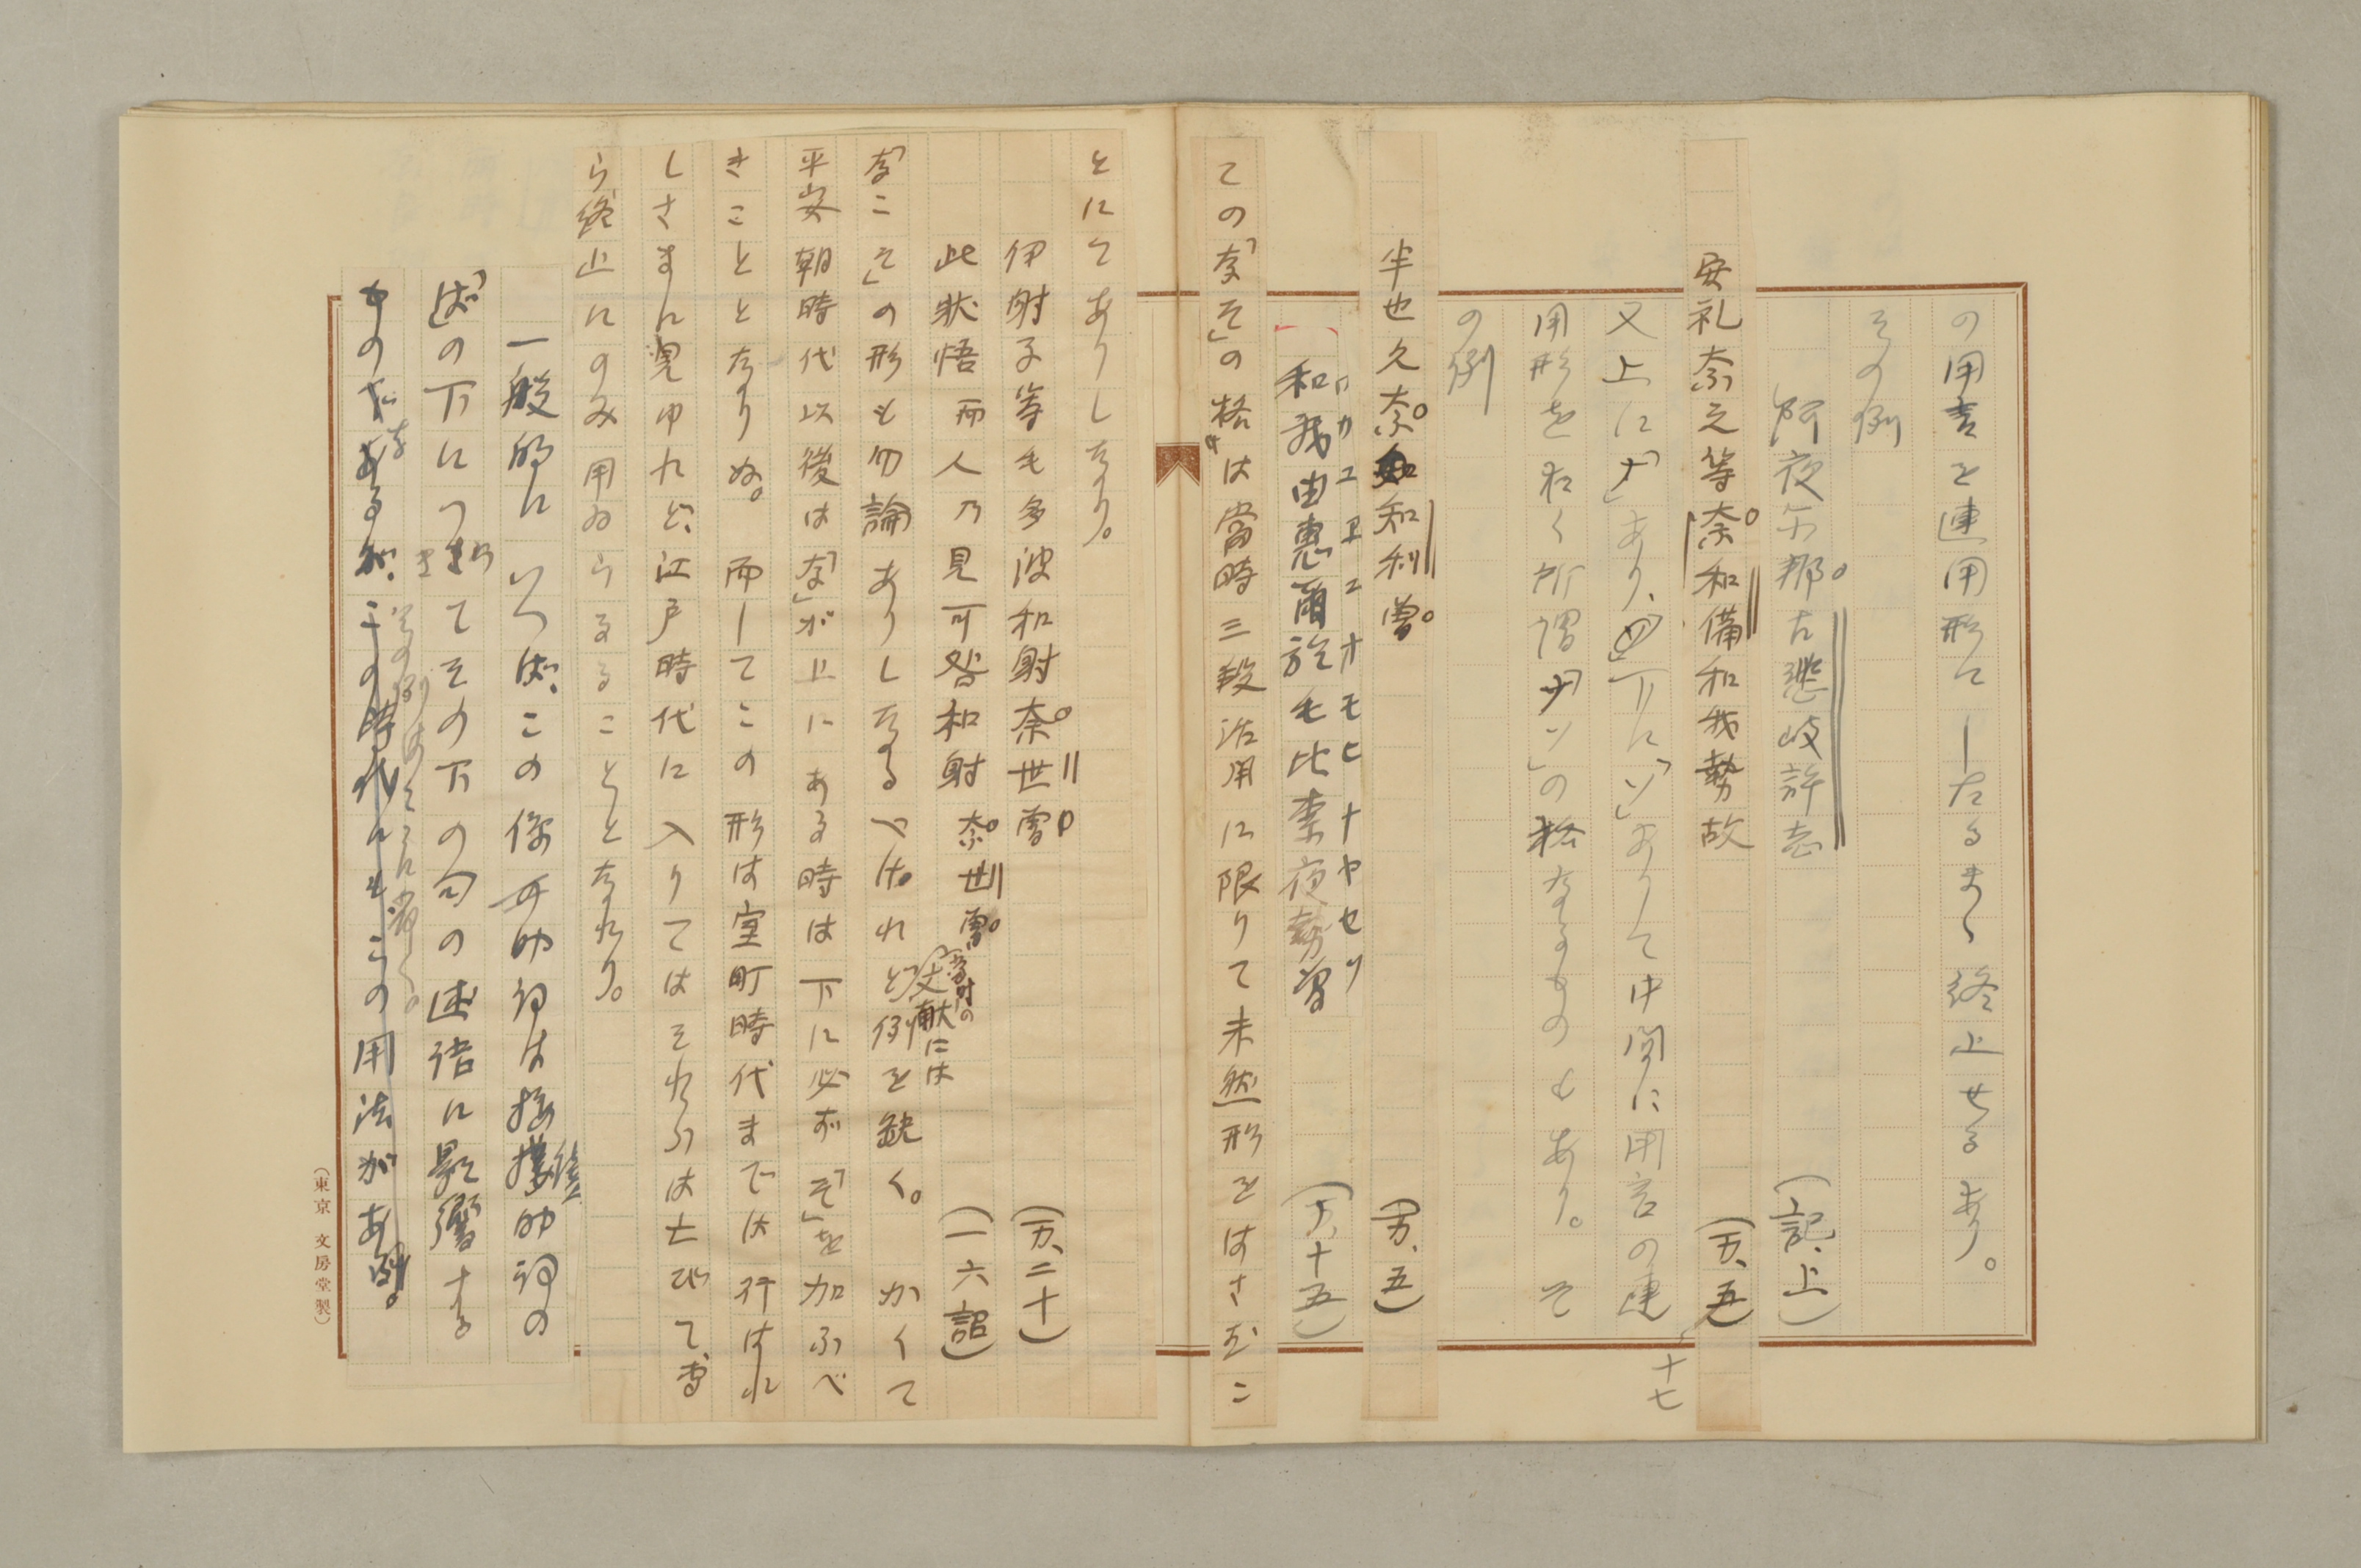 の用言を連用形にしたるまゝ終止せるあり。
その例
阿夜爾那古斐岐許志 (記、上)
安礼奈之等奈和備和我勢故 (万、十七)
又上に「ナ」あり、下に「ソ」ありて中間に用言の連
用形をおく所謂「ナソ」の格なるものもあり。そ
の例
半也久奈和利曽 (万、五)
和我由恵爾於毛比奈夜勢曽 (万、十五)
ワカユヱニオモヒナヤセソ
ての「なそ」の格は當時三段活用に限りて未然形をはさむこ
とにてありしなり。
伊射子等毛多波和射奈世曽 (万、二十)
此状悟而人乃見可咎和射奈世曽 (一六詔)
「なこそ」の形も勿論ありしなるべけれど當時の文献には例を缺く。かくて
平安朝時代以後は「な」が上にある時は下に必ず「そ」を加ふべ
きこととなりぬ。而してこの形は室町時代までは行はれ
しさまに見ゆれど、江戸時代に入りてはそれらは亡びて、
ら終止にのみ用ゐらるることとなれり。
一般的にいへば、この係助詞は接續助詞の
「ば」の下につきてその下の句の述語に影響する
ものであるが、この時代にもこの用法がある。